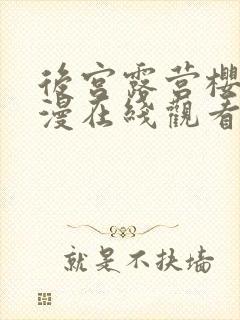 後宮露营櫻
漫在綫觀看
就是不扶墙